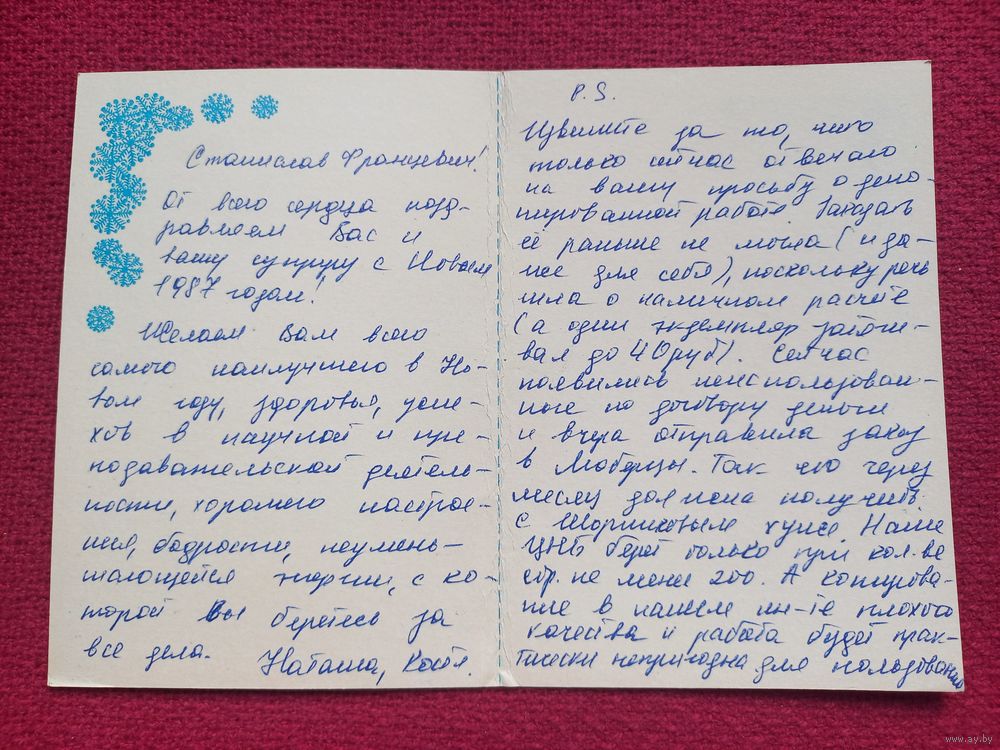 Станислав Францевич!
От всего сердца позд-
равляем Вас и
вашу супругу с Новым
1987 годом!
Желаем Вам всего
самого наилучшего в Но-
вом году, здоровья, успе-
хов в научной и пре-
подавательской деятель-
ности, хорошего настрое-
ния, бодрости, неумень-
шающейся энергии, с ко-
торой Вы беретесь за
все дела.
Наташа, Костя.
P.S.
Извините за то, что
только сейчас отвечаю
на вашу просьбу о депо-
нированной работе. Заказать
её раньше не могла (и да-
же для себя), поскольку речь
шла о наличном расчёте
(а один экземпляр затяги-
вал до 40 руб). Сейчас
появились неиспользован-
ные по договору деньги
и вчера отправила заказ
в Люберцы. Так что через
месяц должна получить.
С Шориковым хуже. Наша
ЦНБ берет только при кол-ве
стр. не менее 200. А копирова-
ние в нашем ин-те плохого
качества и работа будет прак-
тически непригодна для пользования
www.ay.by